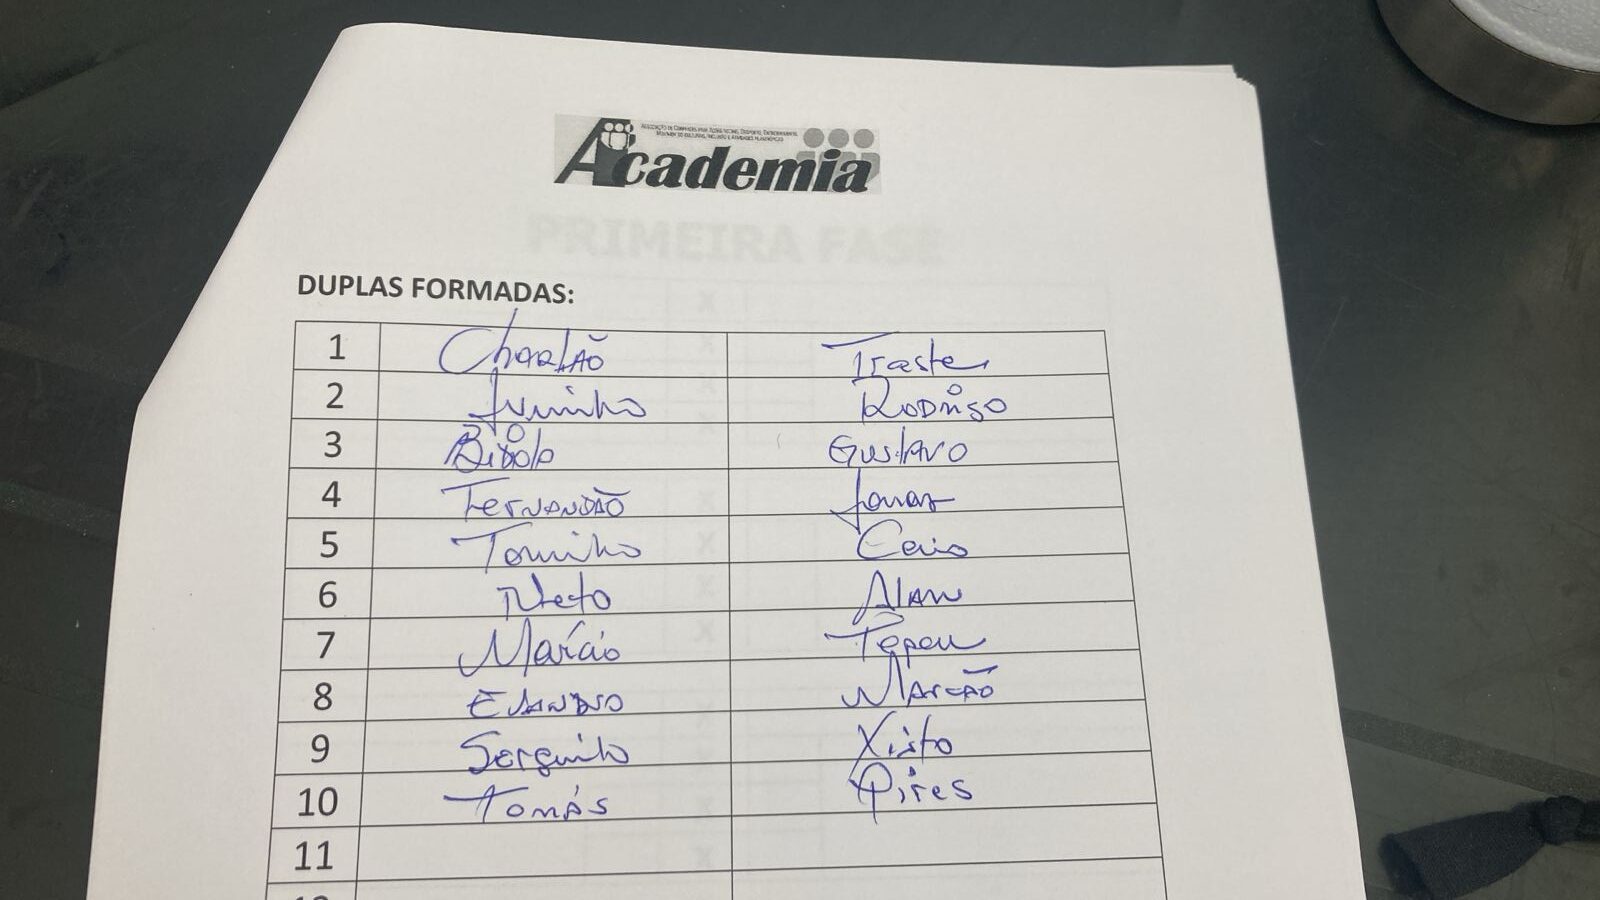 Academia
PRIMEIRA FASE
DUPLAS FORMADAS:
1 Charlão Traste
2 Juninho Rodrigo
3 Gustavo
4 Fernandão Jonas
5 Toninho Caio
6 Neto Alan
7 Marcio
8 Evandro Marcão
9 Serginho Xisto
10 Tomás Pires
11